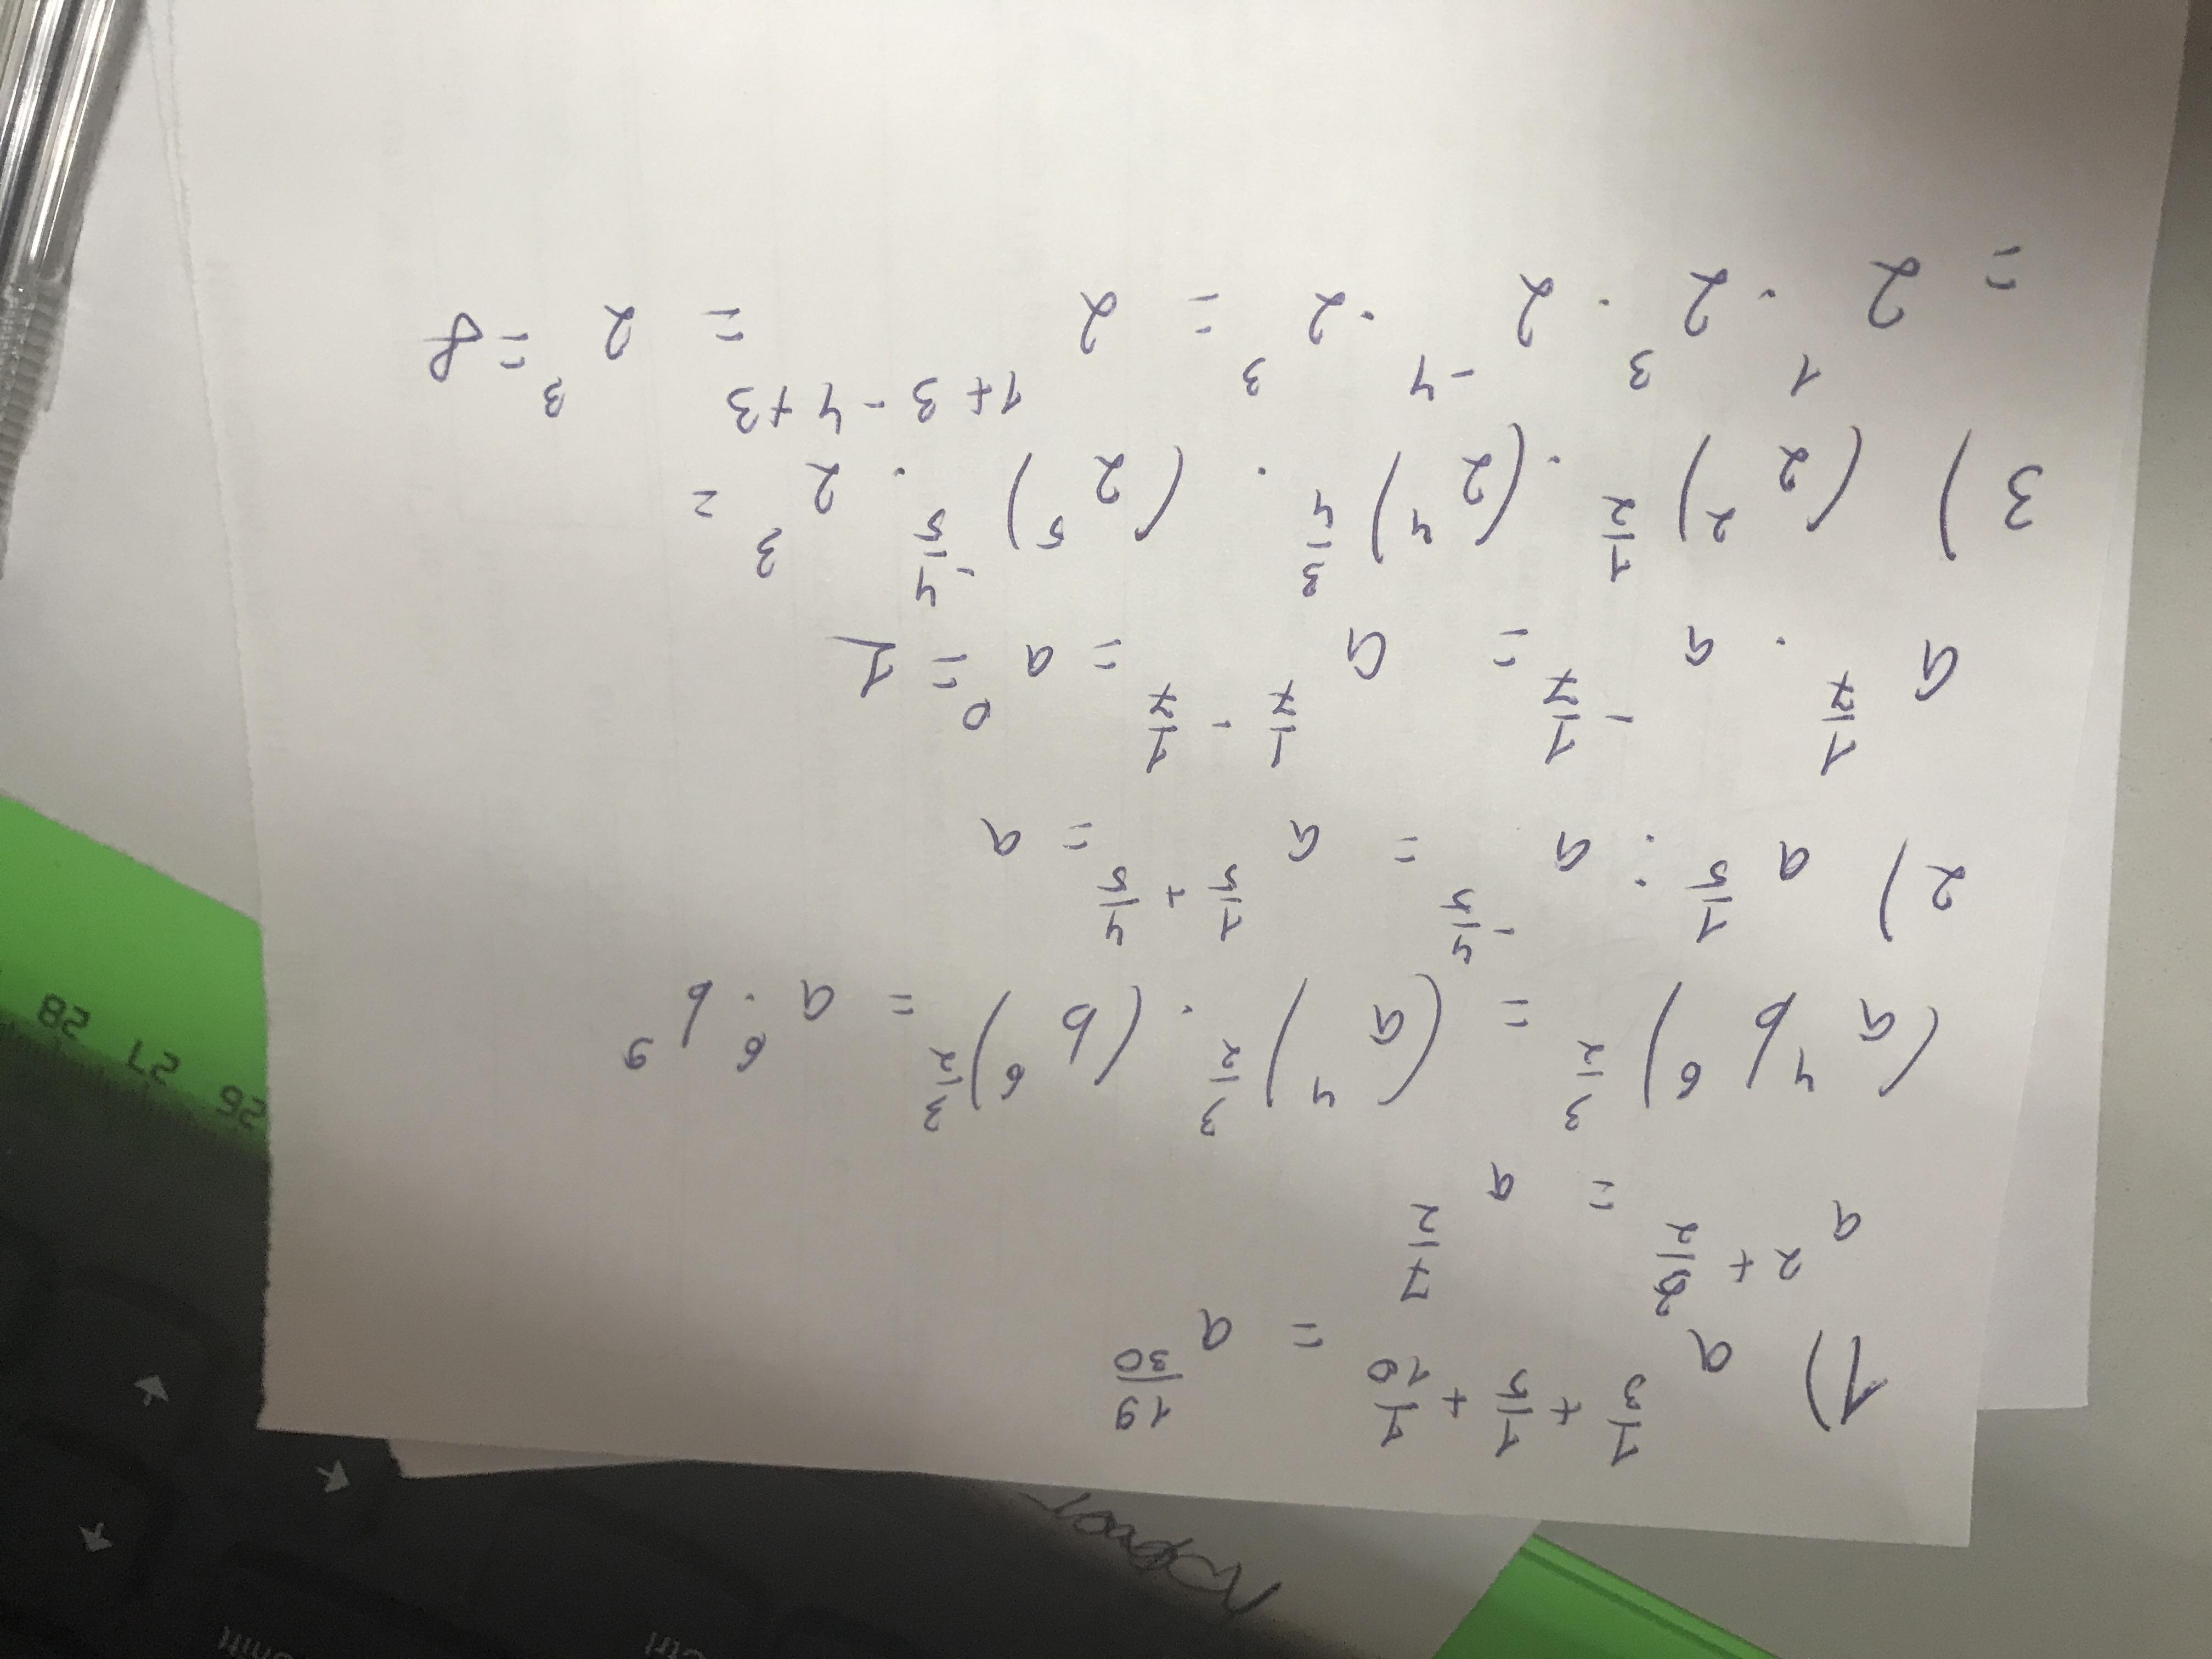 1) a^{\frac{1}{3}+\frac{1}{5}+\frac{1}{10}} = a^{\frac{19}{30}}
a^{2+\frac{3}{2}} = a^{\frac{7}{2}}
(a^4 b^6)^{\frac{3}{2}} = (a^4)^{\frac{3}{2}} · (b^6)^{\frac{3}{2}} = a^6 · b^9
2) a^{\frac{1}{5}} : a^{-\frac{4}{5}} = a^{\frac{1}{5}+\frac{4}{5}} = a
a^{\frac{1}{7}} · a^{-\frac{1}{7}} = a^{\frac{1}{7}-\frac{1}{7}} = a^0 = 1
3) (2^2)^{\frac{1}{2}} · (2^4)^{\frac{3}{4}} · (2^5)^{-\frac{4}{5}} · 2^3 =
= 2^1 · 2^3 · 2^{-4} · 2^3 = 2^{1+3-4+3} = 2^3 = 8
26 27 28
Shift
Ctrl